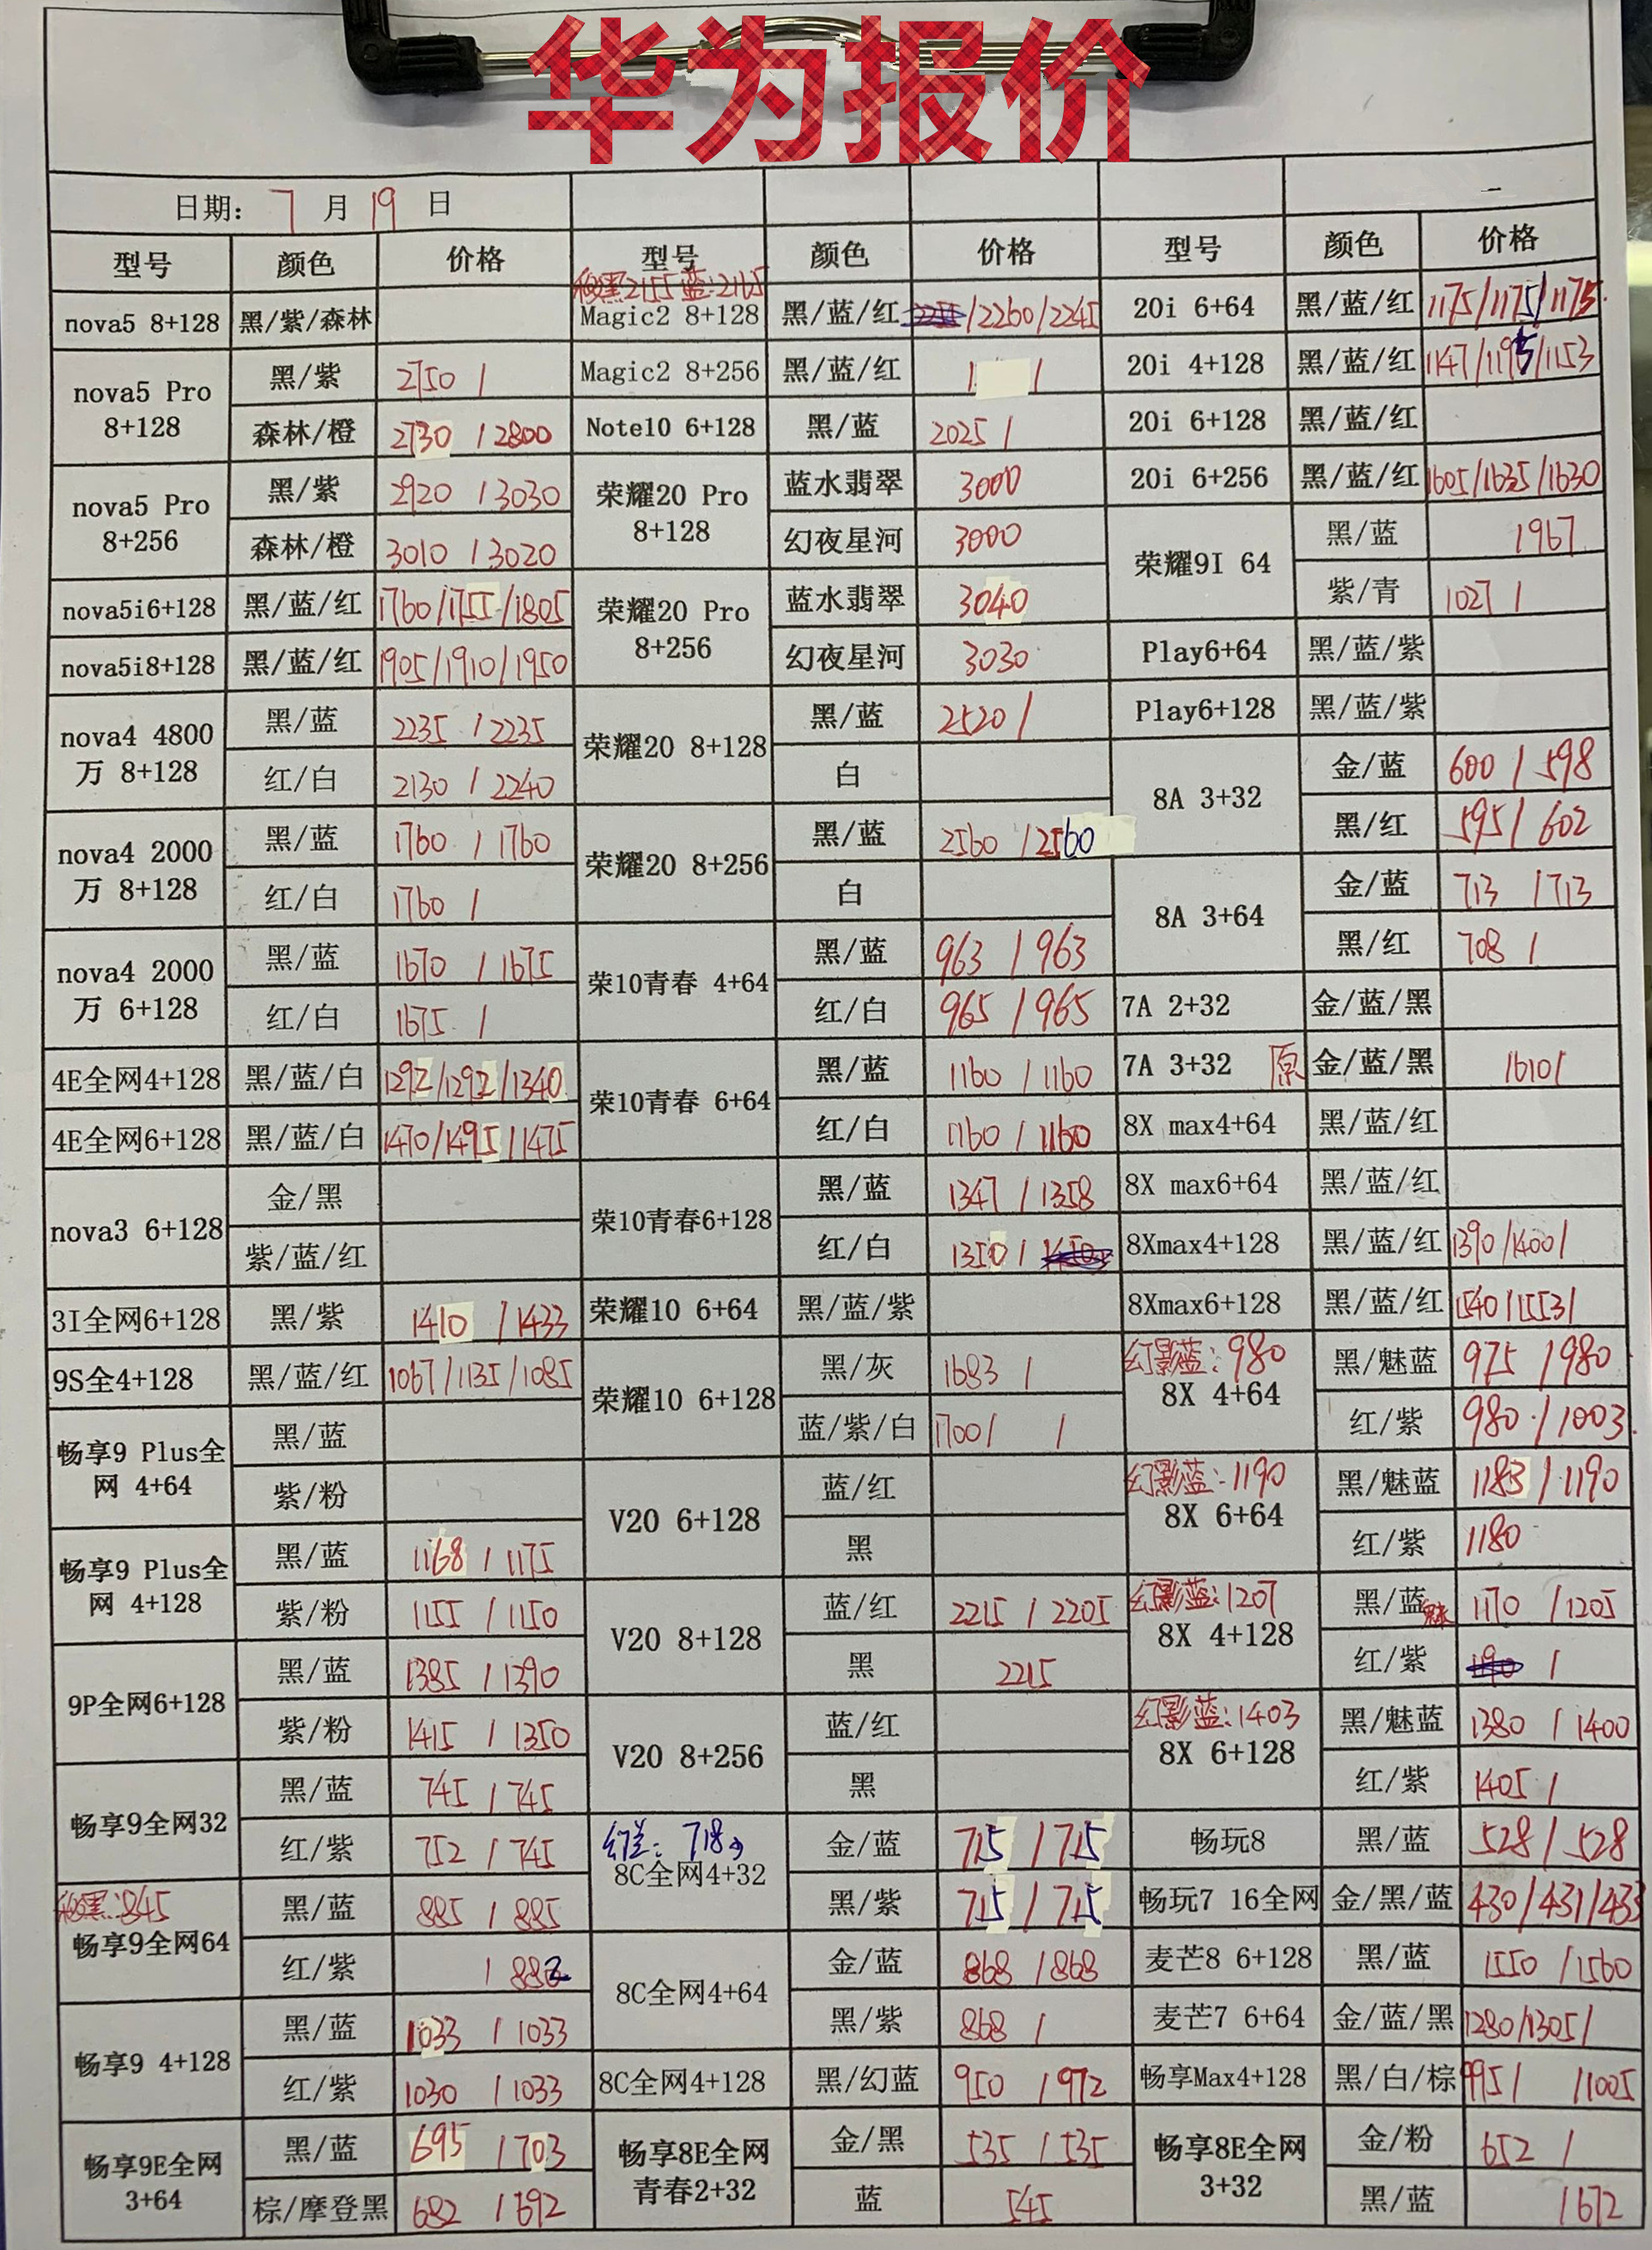 华为报价
日期: 7 月 19 日
型号 颜色 价格 型号 颜色 价格 型号 颜色 价格
nova5 8+128 黑/紫/森林
nova5 Pro 8+128 黑/紫 2750 /
森林/橙 2730 / 2800
nova5 Pro 8+256 黑/紫 2920 / 3030
森林/橙 3010 / 3020
nova5i6+128 黑/蓝/红 1760/1755/1805
nova5i8+128 黑/蓝/红 1905/1910/1950
nova4 4800万 8+128 黑/蓝 2235 / 2235
红/白 2130 / 2240
nova4 2000万 8+128 黑/蓝 1760 / 1760
红/白 1760 /
nova4 2000万 6+128 黑/蓝 1670 / 1675
红/白 1675 /
4E全网4+128 黑/蓝/白 1292/1292/1340
4E全网6+128 黑/蓝/白 1470/1495/1475
nova3 6+128 金/黑
紫/蓝/红
3I全网6+128 黑/紫 1410 / 1433
9S全4+128 黑/蓝/红 1067/1135/1085
畅享9 Plus全网 4+64 黑/蓝
紫/粉
畅享9 Plus全网 4+128 黑/蓝 1168 / 1175
紫/粉 1155 / 1150
9P全网6+128 黑/蓝 1385 / 1390
紫/粉 1415 / 1350
畅享9全网32 黑/蓝 745 / 745
红/紫 752 / 745
极黑:845
畅享9全网64 黑/蓝 885 / 885
红/紫 / 882
畅享9 4+128 黑/蓝 1033 / 1033
红/紫 1030 / 1033
畅享9E全网 3+64 黑/蓝 695 / 703
棕/摩登黑 682 / 692
极黑2155 蓝:2165
Magic2 8+128 黑/蓝/红 /2260/2245
Magic2 8+256 黑/蓝/红 / /
Note10 6+128 黑/蓝 2025 /
荣耀20 Pro 8+128 蓝水翡翠 3000
幻夜星河 3000
荣耀20 Pro 8+256 蓝水翡翠 3040
幻夜星河 3030
荣耀20 8+128 黑/蓝 2520 /
白
荣耀20 8+256 黑/蓝 2560 / 2560
白
荣10青春 4+64 黑/蓝 963 / 963
红/白 965 / 965
荣10青春 6+64 黑/蓝 1160 / 1160
红/白 1160 / 1160
荣10青春6+128 黑/蓝 1347 / 1358
红/白 1350 /
荣耀10 6+64 黑/蓝/紫
荣耀10 6+128 黑/灰 1683 /
蓝/紫/白 1700/ /
V20 6+128 蓝/红
黑
V20 8+128 蓝/红 2215 / 2205
黑 2215
V20 8+256 蓝/红
黑
幻兰: 718
8C全网4+32 金/蓝 715 / 715
黑/紫 715 / 715
8C全网4+64 金/蓝 868 / 868
黑/紫 868 /
8C全网4+128 黑/幻蓝 950 / 972
畅享8E全网 青春2+32 金/黑 535 / 535
蓝 545
20i 6+64 黑/蓝/红 1175/1175/1175
20i 4+128 黑/蓝/红 1147/1195/1153
20i 6+128 黑/蓝/红
20i 6+256 黑/蓝/红 1605/1635/1630
荣耀9I 64 黑/蓝 / 967
紫/青 1027 /
Play6+64 黑/蓝/紫
Play6+128 黑/蓝/紫
8A 3+32 金/蓝 600 / 598
黑/红 595 / 602
8A 3+64 金/蓝 713 / 713
黑/红 708 /
7A 2+32 金/蓝/黑
7A 3+32 原 金/蓝/黑 /610/
8X max4+64 黑/蓝/红
8X max6+64 黑/蓝/红
8Xmax4+128 黑/蓝/红 1390/1400/
8Xmax6+128 黑/蓝/红 1540/1553/
幻影蓝:980
8X 4+64 黑/魅蓝 975 / 980
红/紫 980 / 1003
幻影蓝:1190
8X 6+64 黑/魅蓝 1183 / 1190
红/紫 1180
幻影蓝:1207
8X 4+128 黑/蓝魅 1170 / 1205
红/紫 /
幻影蓝:1403
8X 6+128 黑/魅蓝 1380 / 1400
红/紫 1405 /
畅玩8 黑/蓝 528 / 528
畅玩7 16全网 金/黑/蓝 430/431/433
麦芒8 6+128 黑/蓝 1550 / 1560
麦芒7 6+64 金/蓝/黑 1280/1305/
畅享Max4+128 黑/白/棕 995/ /1005
畅享8E全网 3+32 金/粉 652 /
黑/蓝 / 672